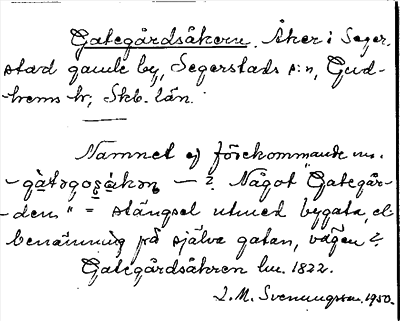 Gategårdsåkern. Åker i Seger-
stad gamla by, Segerstads s:n, Gud-
hems hr, Skb. län.
Namnet ej förekommande nu.
- gàtəgoṣåkən — ? Något "Gategår-
den" = stängsel utmed bygata, el.
benämning på själva gatan, vägen?
Gategårdsåkren lm. 1822.
L.M. Svenungsson. 1950.